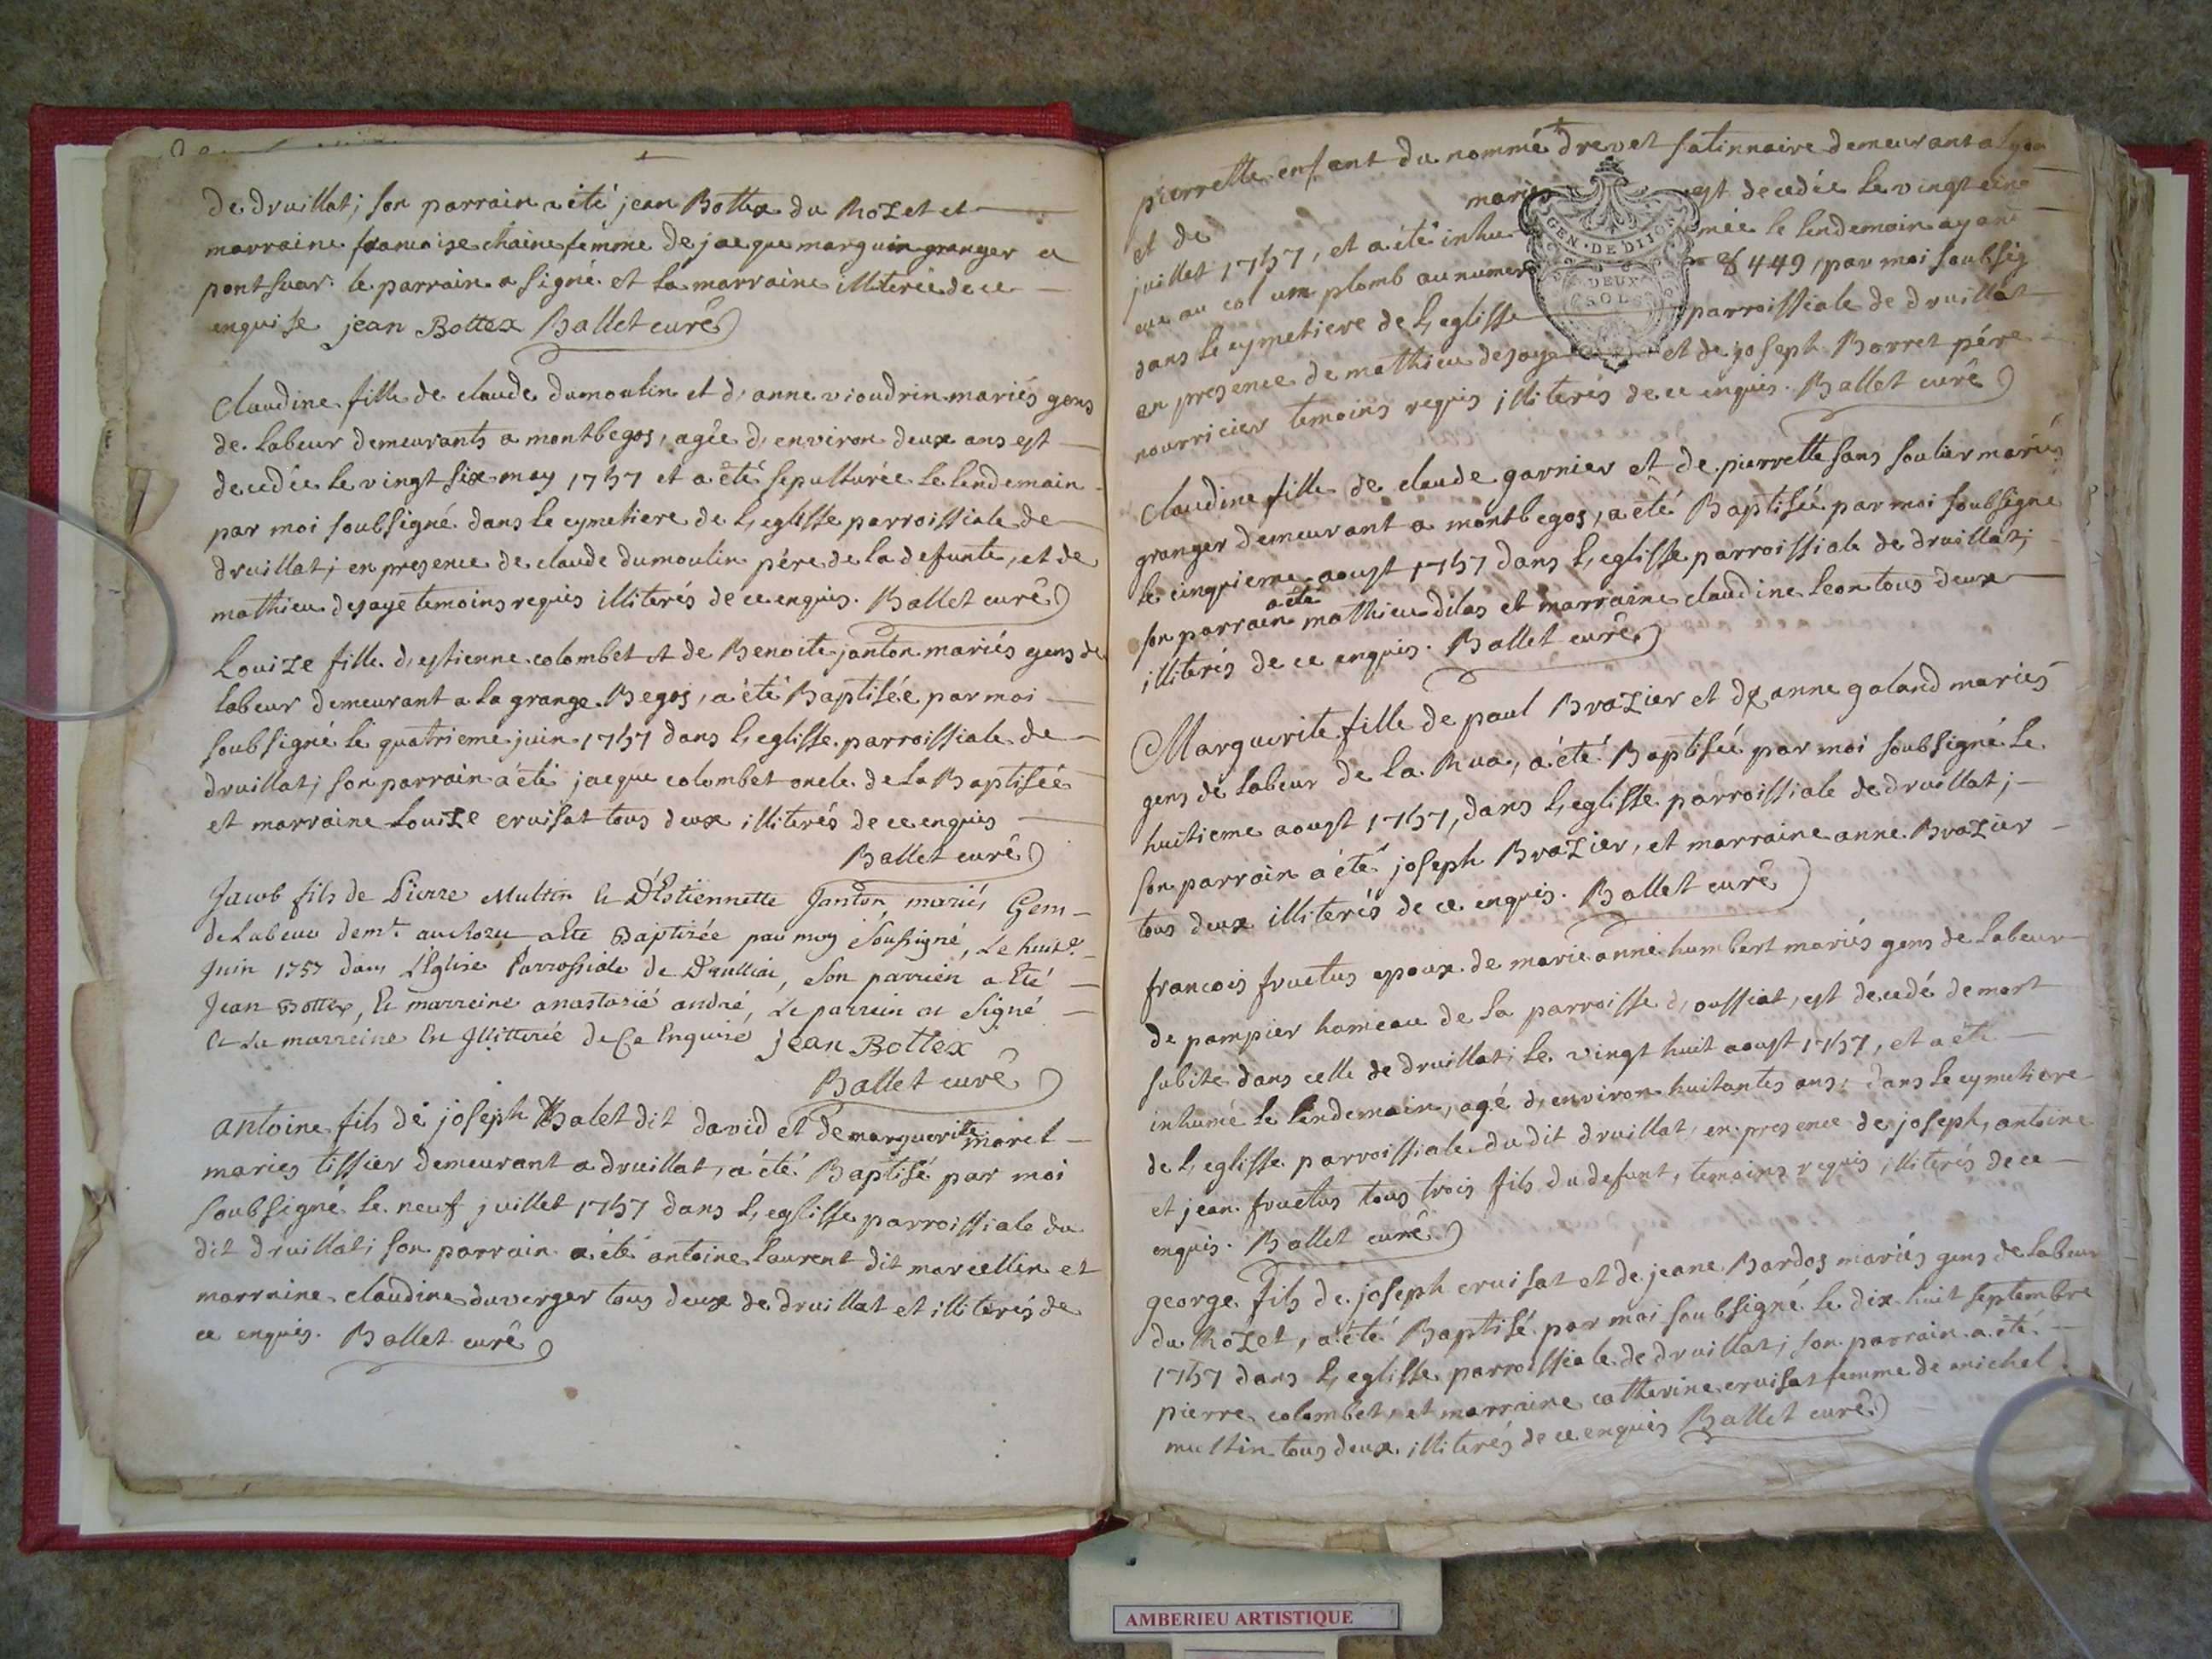 de druillat; son parrain a été jean Bottex du Rozet et
marraine francoise chaine femme de jacque marguin granger a
pont suar. le parrain a signé et la marraine illiterée de ce
enquise jean Bottex Ballet curé
Claudine fille de claude dumoulin et d, anne vioudrin mariés gens
de labeur demeurants a montbegos, agée d, environ deux ans est
decedée le vingt six may 1757 et a été sepulturée le lendemain
par moi soubsigné dans le cymetiere de l, eglisse parroissiale de
druillat; en presence de claude dumoulin pére de la defunte, et de
mathieu desaye temoins requis illiterés de ce enquis. Ballet curé
Louize fille d, estienne colombet et de Benoite janton mariés gens de
labeur demeurant a la grange Begos, a été Baptisée par moi
soubsigné le quatrieme juin 1757 dans l, eglisse parroissiale de
druillat; son parrain a été jacque colombet oncle de la Baptisée
et marraine Louize cruisat tous deux illiterés de ce enquis
Ballet curé
Jacob fils de Pierre Multin et D'Estiennette Janton, mariés Gens
de Labeur demt. au Rozet a Eté Baptizée par moy Soussigné, Le huite.
Juin 1757 dans L'Eglise Parrossiale de Druillia, Son parrein a Eté
Jean Bottex, Et marreine anastasié andré, Le parrein a Signé
Et La marreine En Jllitterée de Ce Enquise jean Bottex
Ballet curé
antoine fils de joseph Balet dit david et de marguerite morel
maries tissier demeurant a druillat, a été Baptisé par moi
soubsigné le neuf juillet 1757 dans l, eglisse parroissiale du
dit druillat; son parrain a été antoine laurent dit marcellin et
marraine claudine duverger tous deux de druillat et illiterés de
ce enquis. Ballet curé
pierrette enfant du nommé drevet satinnaire demeurant a Lyon
et de mariés est decedée le vingt
juillet 1757, et a été inhumée le lendemain ayant
eue au col um plomb au numero 8449, par moi soubsig
dans le cymetiere de l, eglisse parroissiale de druillat
en presence de mathieu desaye et de joseph Borret pére
nourricier temoins requis illiterés de ce enquis. Ballet curé
GEN. DE DIJON
DEUX
SOLS
Claudine fille de claude garnier et de pierrette sans soulier mariés
granger demeurant a montbegos, a été Baptisée par moi soubsigné
le cinquieme aoust 1757 dans l, eglisse parroissiale de druillat;
son parrain a été mathieu dilas et marraine claudine leon tous deux
illiterés de ce enquis. Ballet curé
Marguerite fille de paul Brazier et de anne galand mariés
gens de labeur de la Rua, a été Baptisée par moi soubsigné le
huitieme aoust 1757, dans l, eglisse parroissiale de druillat;
son parrain a été joseph Brazier, et marraine anne Brazier
tous deux illiterés de ce enquis. Ballet curé
francois fructus epoux de marie anne humbert mariés gens de labeur
de pampier hameau de la parroisse d, oussiat, est decedé de mort
subite dans celle de druillat; le vingt huit aoust 1757, et a été
inhumé le lendemain, agé d, environ huitantes ans; dans le cymetiere
de l, eglisse parroissiale du dit druillat; en presence de joseph, antoine
et jean fructus tous trois fils du defunt, temoins requis illiterés de ce
enquis. Ballet curé
george fils de joseph cruisat et de jeane Bardos mariés gens de labeur
du Rozet, a été Baptisé par moi soubsigné le dix huit septembre
1757 dans l, eglisse parroissiale de druillat; son parrain a été
pierre colombet, et marraine catherine cruisat femme de michel
multin tous deux illiterés de ce enquis Ballet curé
AMBERIEU ARTISTIQUE